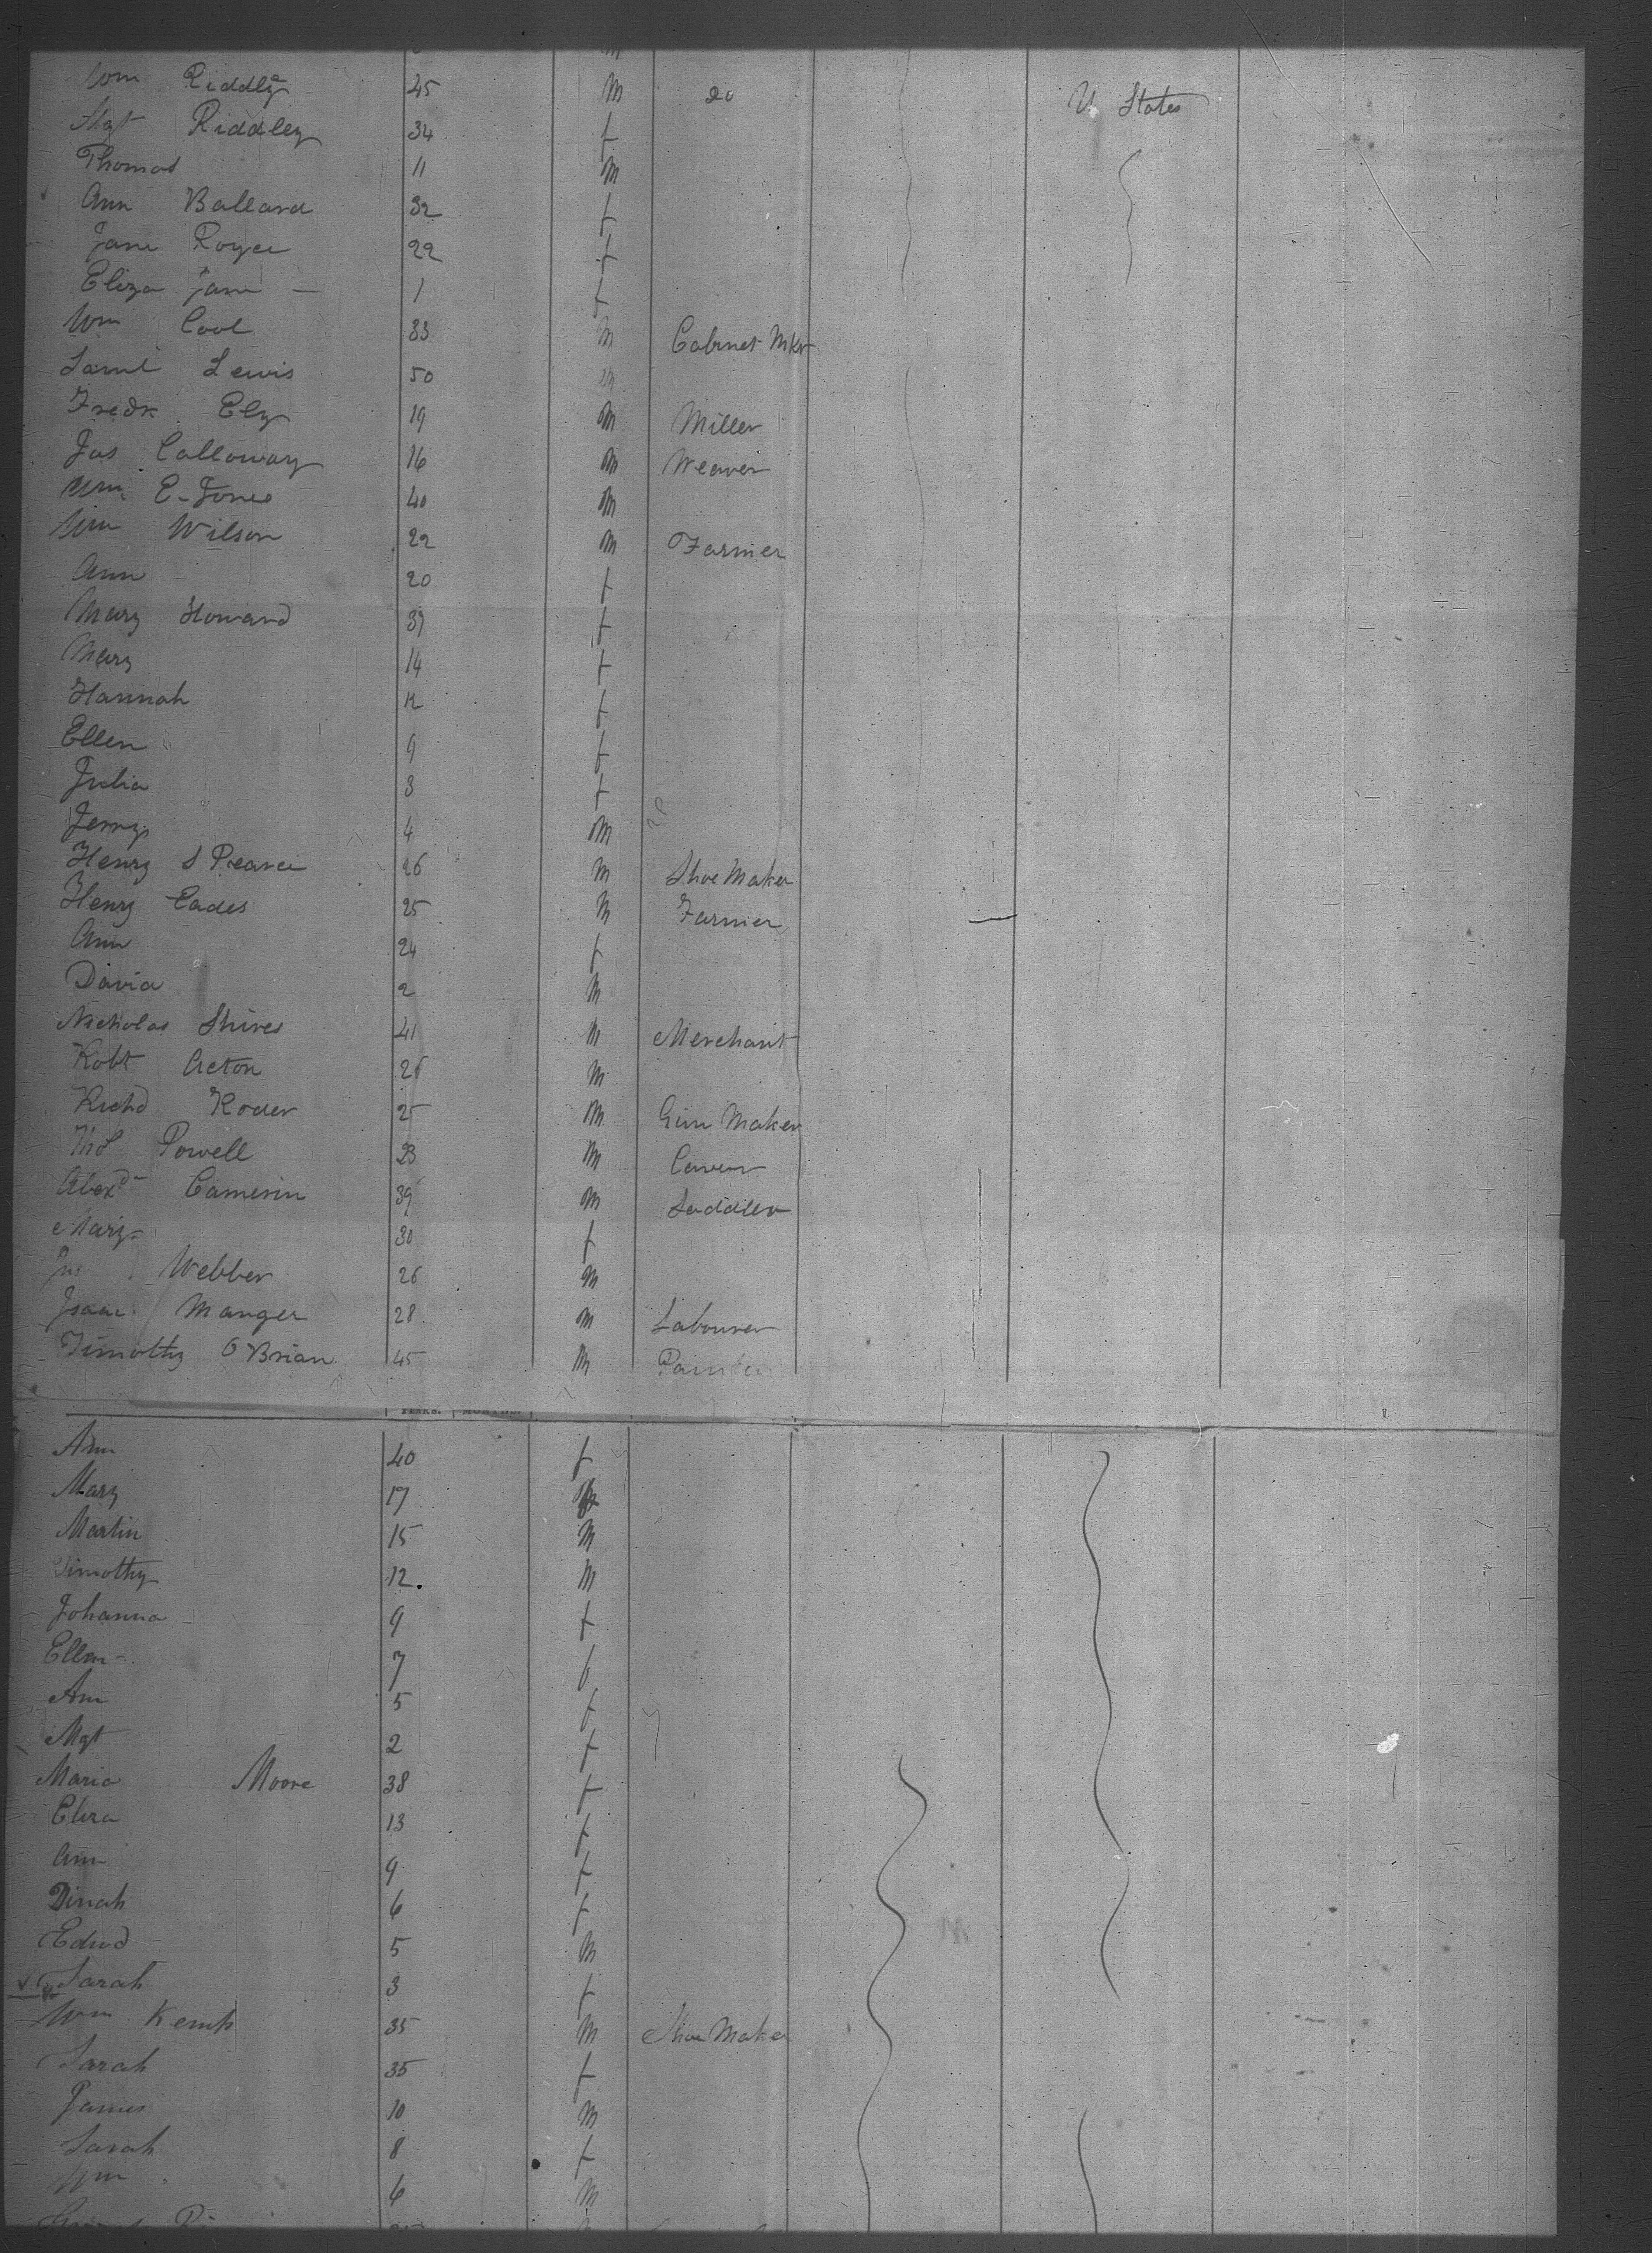 Wm Riddly 45 m do U. States
Mgt Riddley 34 f
Thomas 11 m
Ann Ballard 32 f
Jane Royce 22 f
Eliza Jane — 1 f
Wm Cool 33 m Cabinet Mkr
Saml Lewis 50 m
Fredk Ely 19 m Miller
Jas Calloway 16 m Weaver
Wm E. Jones 40 m
Wm Wilson 22 m Farmer
Ann 20 f
Mary Howard 39 f
Mary 14 f
Hannah 12 f
Ellen 9 f
Julia 8 f
Jerry 4 m
Henry S Pearce 26 m Shoe Maker
Henry Eades 25 m Farmer
Ann 24 f
David 2 m
Nicholas Shires 41 m Merchant
Robt Acton 26 m
Richd Roder 25 m Gun Maker
Thos Powell 23 m
Alexd Camerin 39 m Saddler
Mary 30 f
Webber 26 m
Isaac Manger 28 m Labourer
Timothy O Brian 45 m
YEARS. MONTHS.
Ann 40 f
Mary 17
Martin 15 m
Timothy 12. m
Johanna 9 f
Ellen 7 f
Ann 5 f
Mgt 2 f
Maria Moore 38 f
Eliza 13 f
Ann 9 f
Dinah 6 f
Edwd 5 m
Sarah 3 f
Wm Kemp 35 m Shoe Maker
Sarah 35 f
James 10 m
Sarah 8 f
Wm 6 m